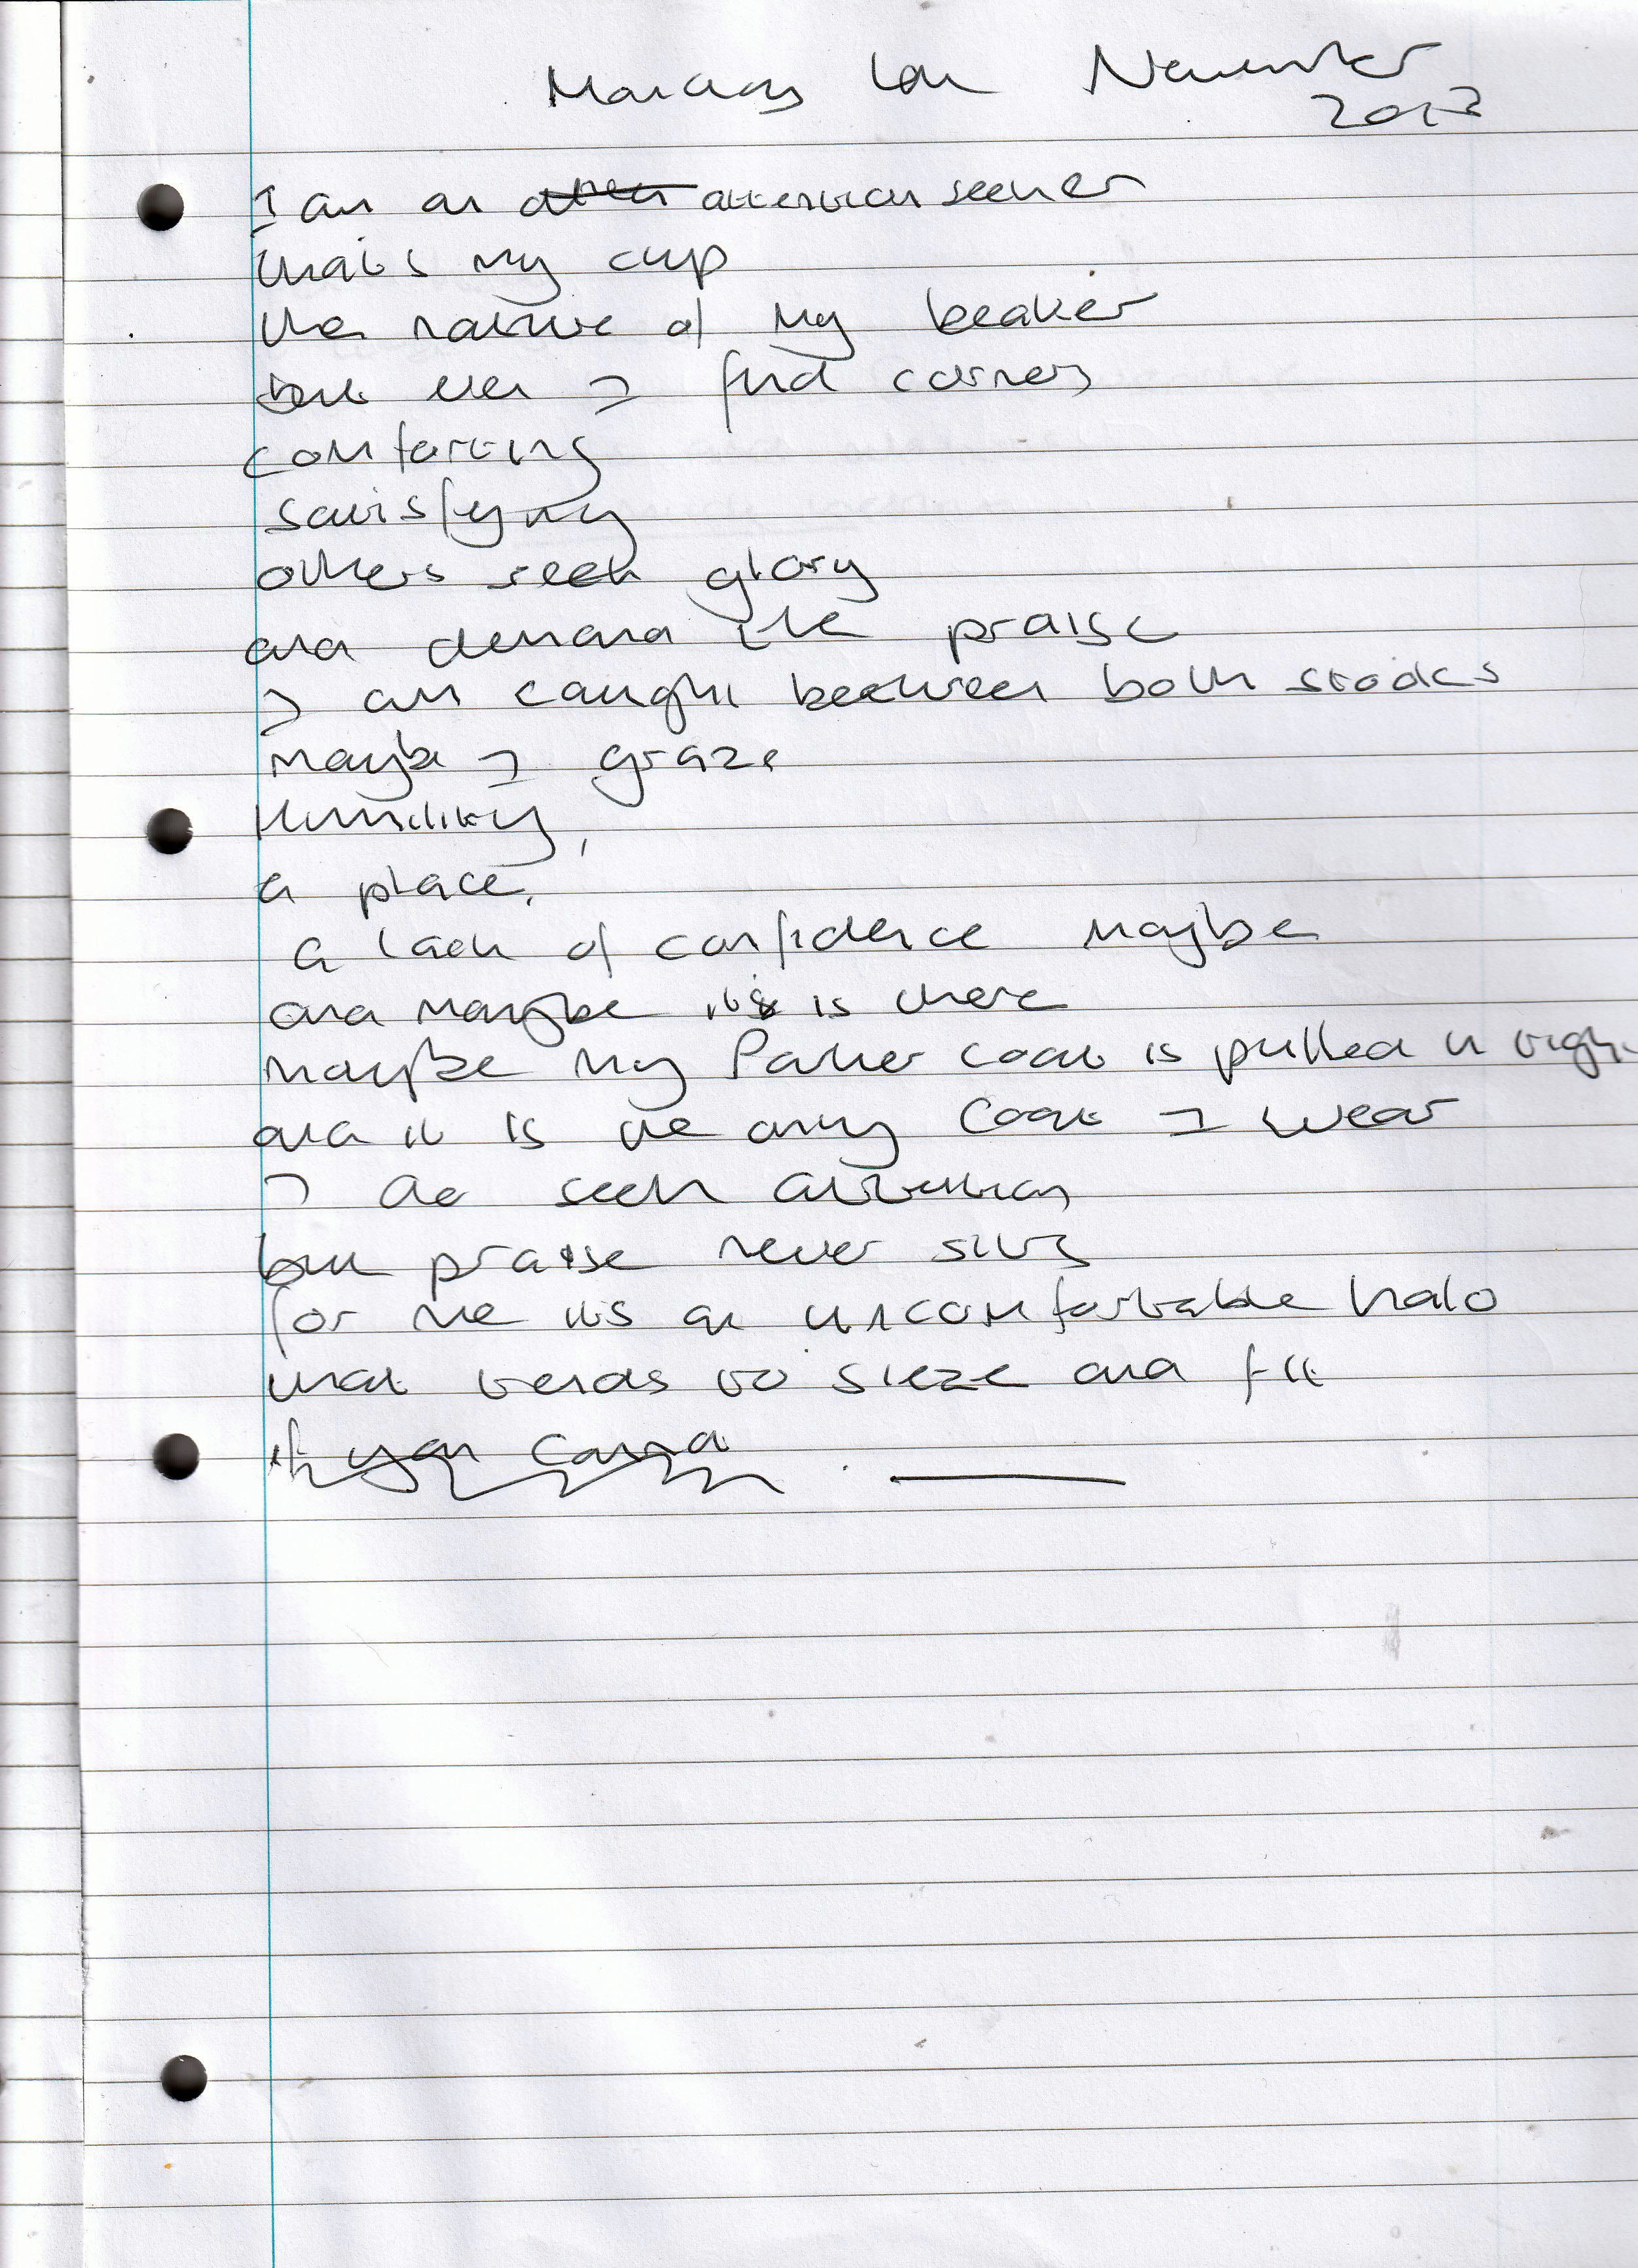 Monday November
2013
I am an attention seeker
that's my cup
the nature of my beaker
but then I find corners
comforting
satisfying
others seek glory
and demand the praise
I am caught between both stocks
maybe I graze
Humility,
a place,
a lack of confidence maybe
and maybe its is there
maybe my Parker coat is pulled in tight
and it is the only coat I wear
I do seek attention
but praise never sits
for me its an uncomfortable halo
that tends to sieze and fit
if you